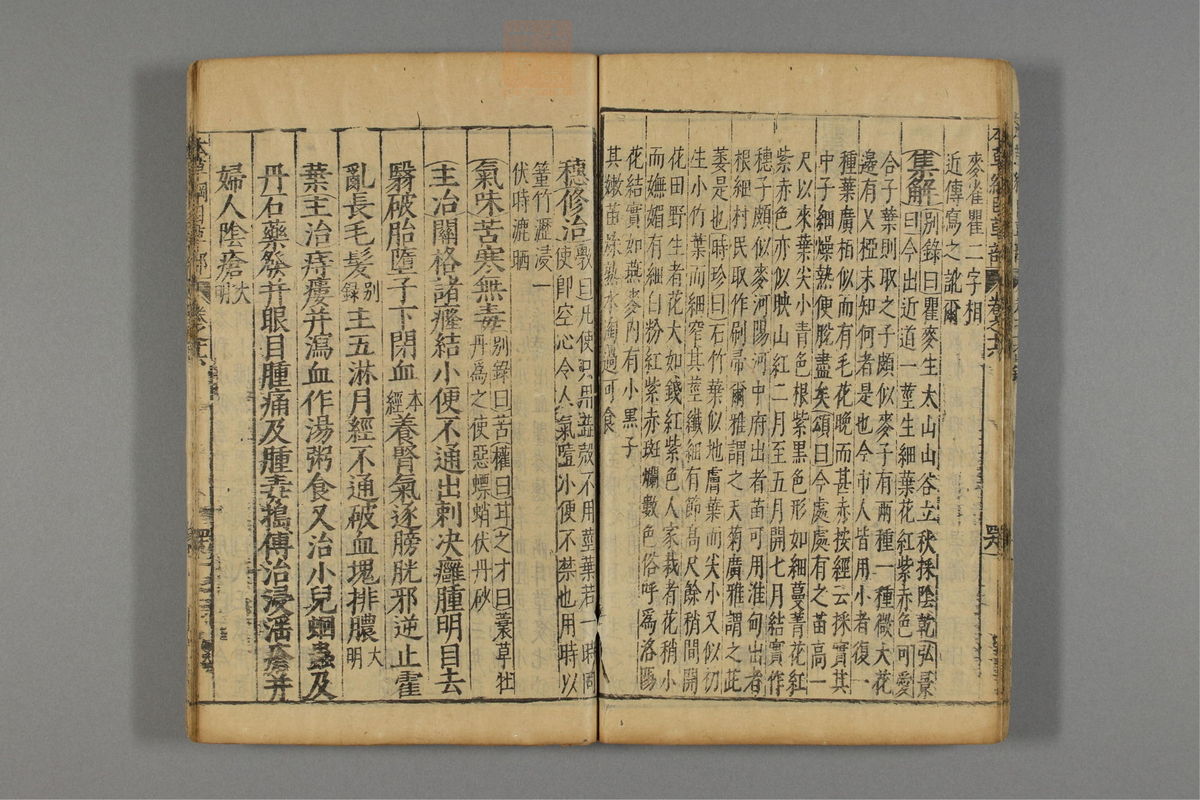 麥雀瞿二字相
近傳寫之訛爾
集解别錄曰瞿麥生太山山谷立秋採陰乾弘景
曰今出近道一莖生細葉花紅紫赤色可愛
合子葉刈取之子頗似麥子有兩種一種微大花
邊有叉椏未知何者是也今市人皆用小者復一
種葉廣相似而有毛花晚而甚赤按經云採實其
中子細燥熟便脫盡矣頌曰今處處有之苗高一
尺以來葉尖小青色根紫黑色形如細蔓菁花紅
紫赤色亦似映山紅二月至五月開七月結實作
穗子頗似麥河陽河中府出者苗可用淮甸出者
根細村民取作刷帚爾雅謂之天菊廣雅謂之茈
萎是也時珍曰石竹葉似地膚葉而尖小又似初
生小竹葉而細窄其莖纖細有節高尺餘稍間開
花田野生者花大如錢紅紫色人家栽者花稍小
而嫵媚有細白粉紅紫赤斑斕數色俗呼爲洛陽
花結實如燕麥内有小黑子
其嫩苗煠熟水淘過可食
穗修治斆曰凡使只用蘂殼不用莖葉若一時同
使即空心令人氣噎小便不禁也用時以
䈽竹瀝浸一
伏時漉晒
氣味苦寒無毒别錄曰苦權曰甘之才曰蘘草牡
丹爲之使惡螵蛸伏丹砂
主治關格諸癃結小便不通出刺决癰腫明目去
翳破胎墮子下閉血本經養腎氣逐膀胱邪逆止霍
亂長毛髮别錄主五淋月經不通破血塊排膿大明
葉主治痔瘻并瀉血作湯粥食又治小兒蛔蟲及
丹石藥發并眼目腫痛及腫毒搗傅治浸淫瘡并
婦人陰瘡大明